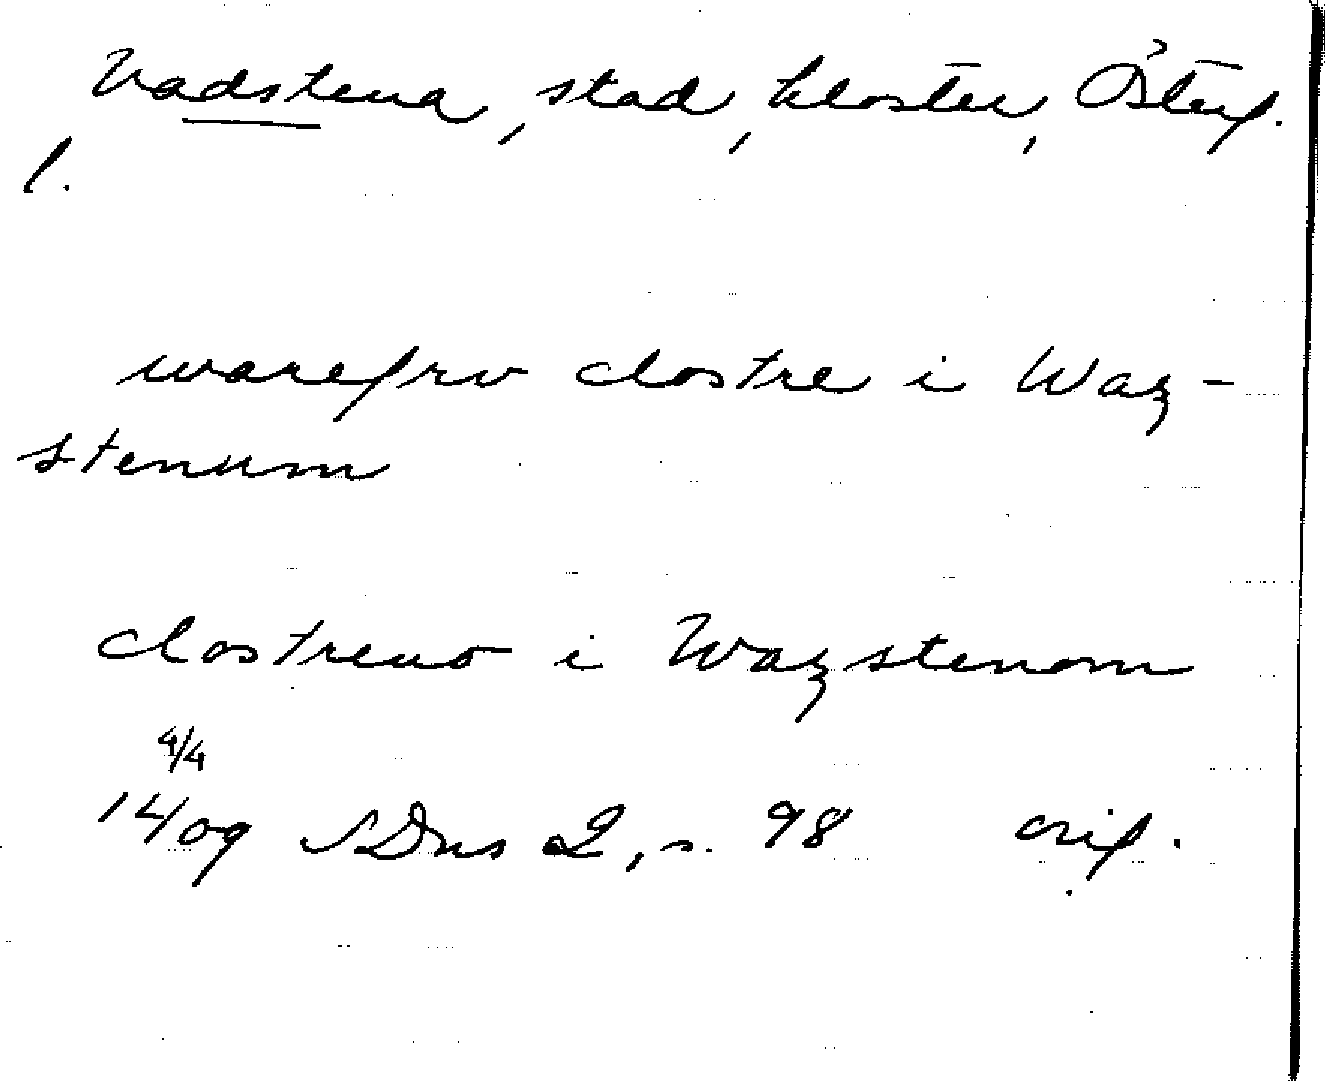 Vadstena, stad, kloster, Östg.
l.
warefrv clostre i Waz-
stenum
clostreno i Wazstenom
4/4
1409 SDns 2, s. 98 orig.